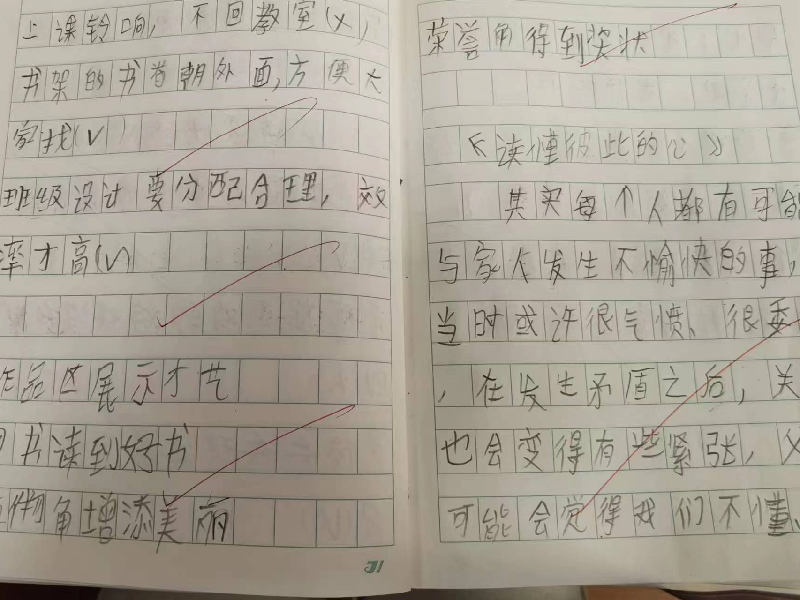 上课铃响，不回教室(×)，
书架的书脊朝外面，方便大
家找(√)
班级设计要分配合理，效
率才高(√)
作品区展示才艺
图书读到好书
植物角增添美丽
31
荣誉角得到奖状
《读懂彼此的心》
其实每个人都有可能
与家人发生不愉快的事，
当时或许很气愤、很委
，在发生矛盾之后，关
也会变得有些紧张，父
可能会觉得我们不懂